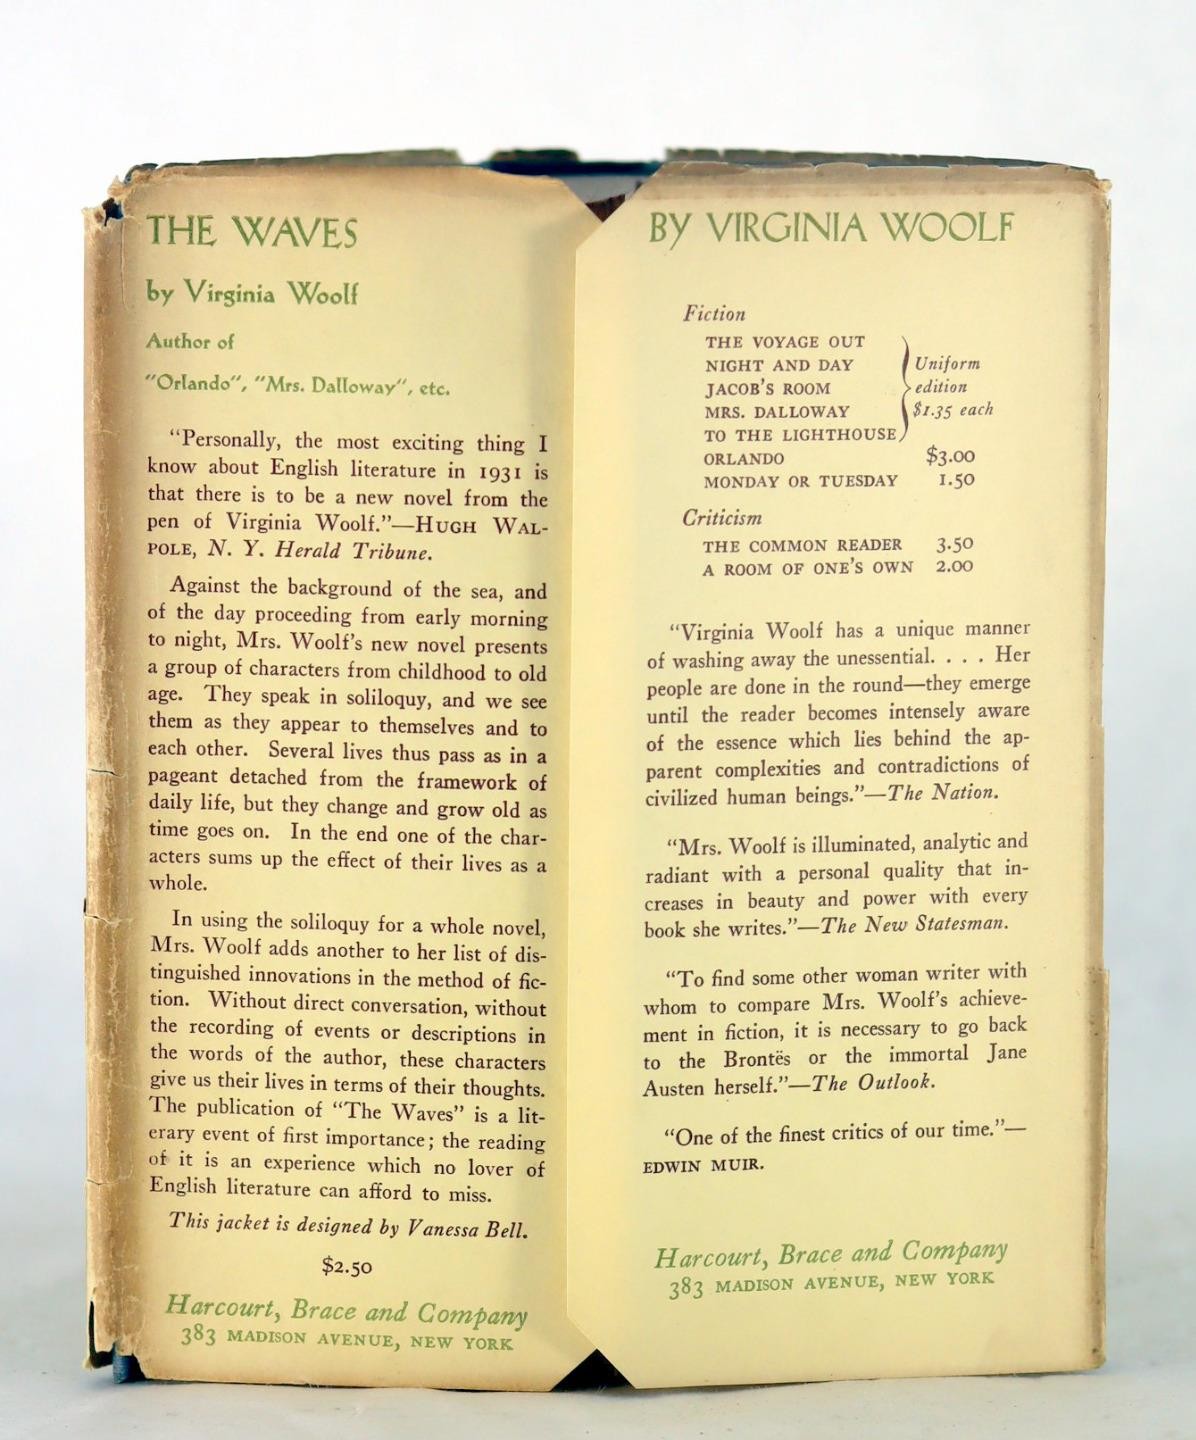 THE WAVES
by Virginia Woolf
Author of
"Orlando", "Mrs. Dalloway", etc.
"Personally, the most exciting thing I
know about English literature in 1931 is
that there is to be a new novel from the
pen of Virginia Woolf."—HUGH WAL-
POLE, N. Y. Herald Tribune.
Against the background of the sea, and
of the day proceeding from early morning
to night, Mrs. Woolf's new novel presents
a group of characters from childhood to old
age. They speak in soliloquy, and we see
them as they appear to themselves and to
each other. Several lives thus pass as in a
pageant detached from the framework of
daily life, but they change and grow old as
time goes on. In the end one of the char-
acters sums up the effect of their lives as a
whole.
In using the soliloquy for a whole novel,
Mrs. Woolf adds another to her list of dis-
tinguished innovations in the method of fic-
tion. Without direct conversation, without
the recording of events or descriptions in
the words of the author, these characters
give us their lives in terms of their thoughts.
The publication of "The Waves" is a lit-
erary event of first importance; the reading
of it is an experience which no lover of
English literature can afford to miss.
This jacket is designed by Vanessa Bell.
$2.50
Harcourt, Brace and Company
383 MADISON AVENUE, NEW YORK
BY VIRGINIA WOOLF
Fiction
THE VOYAGE OUT
NIGHT AND DAY Uniform
JACOB'S ROOM edition
MRS. DALLOWAY $1.35 each
TO THE LIGHTHOUSE
ORLANDO $3.00
MONDAY OR TUESDAY 1.50
Criticism
THE COMMON READER 3.50
A ROOM OF ONE'S OWN 2.00
"Virginia Woolf has a unique manner
of washing away the unessential. . . . Her
people are done in the round—they emerge
until the reader becomes intensely aware
of the essence which lies behind the ap-
parent complexities and contradictions of
civilized human beings."—The Nation.
"Mrs. Woolf is illuminated, analytic and
radiant with a personal quality that in-
creases in beauty and power with every
book she writes."—The New Statesman.
"To find some other woman writer with
whom to compare Mrs. Woolf's achieve-
ment in fiction, it is necessary to go back
to the Brontës or the immortal Jane
Austen herself."—The Outlook.
"One of the finest critics of our time."—
EDWIN MUIR.
Harcourt, Brace and Company
383 MADISON AVENUE, NEW YORK